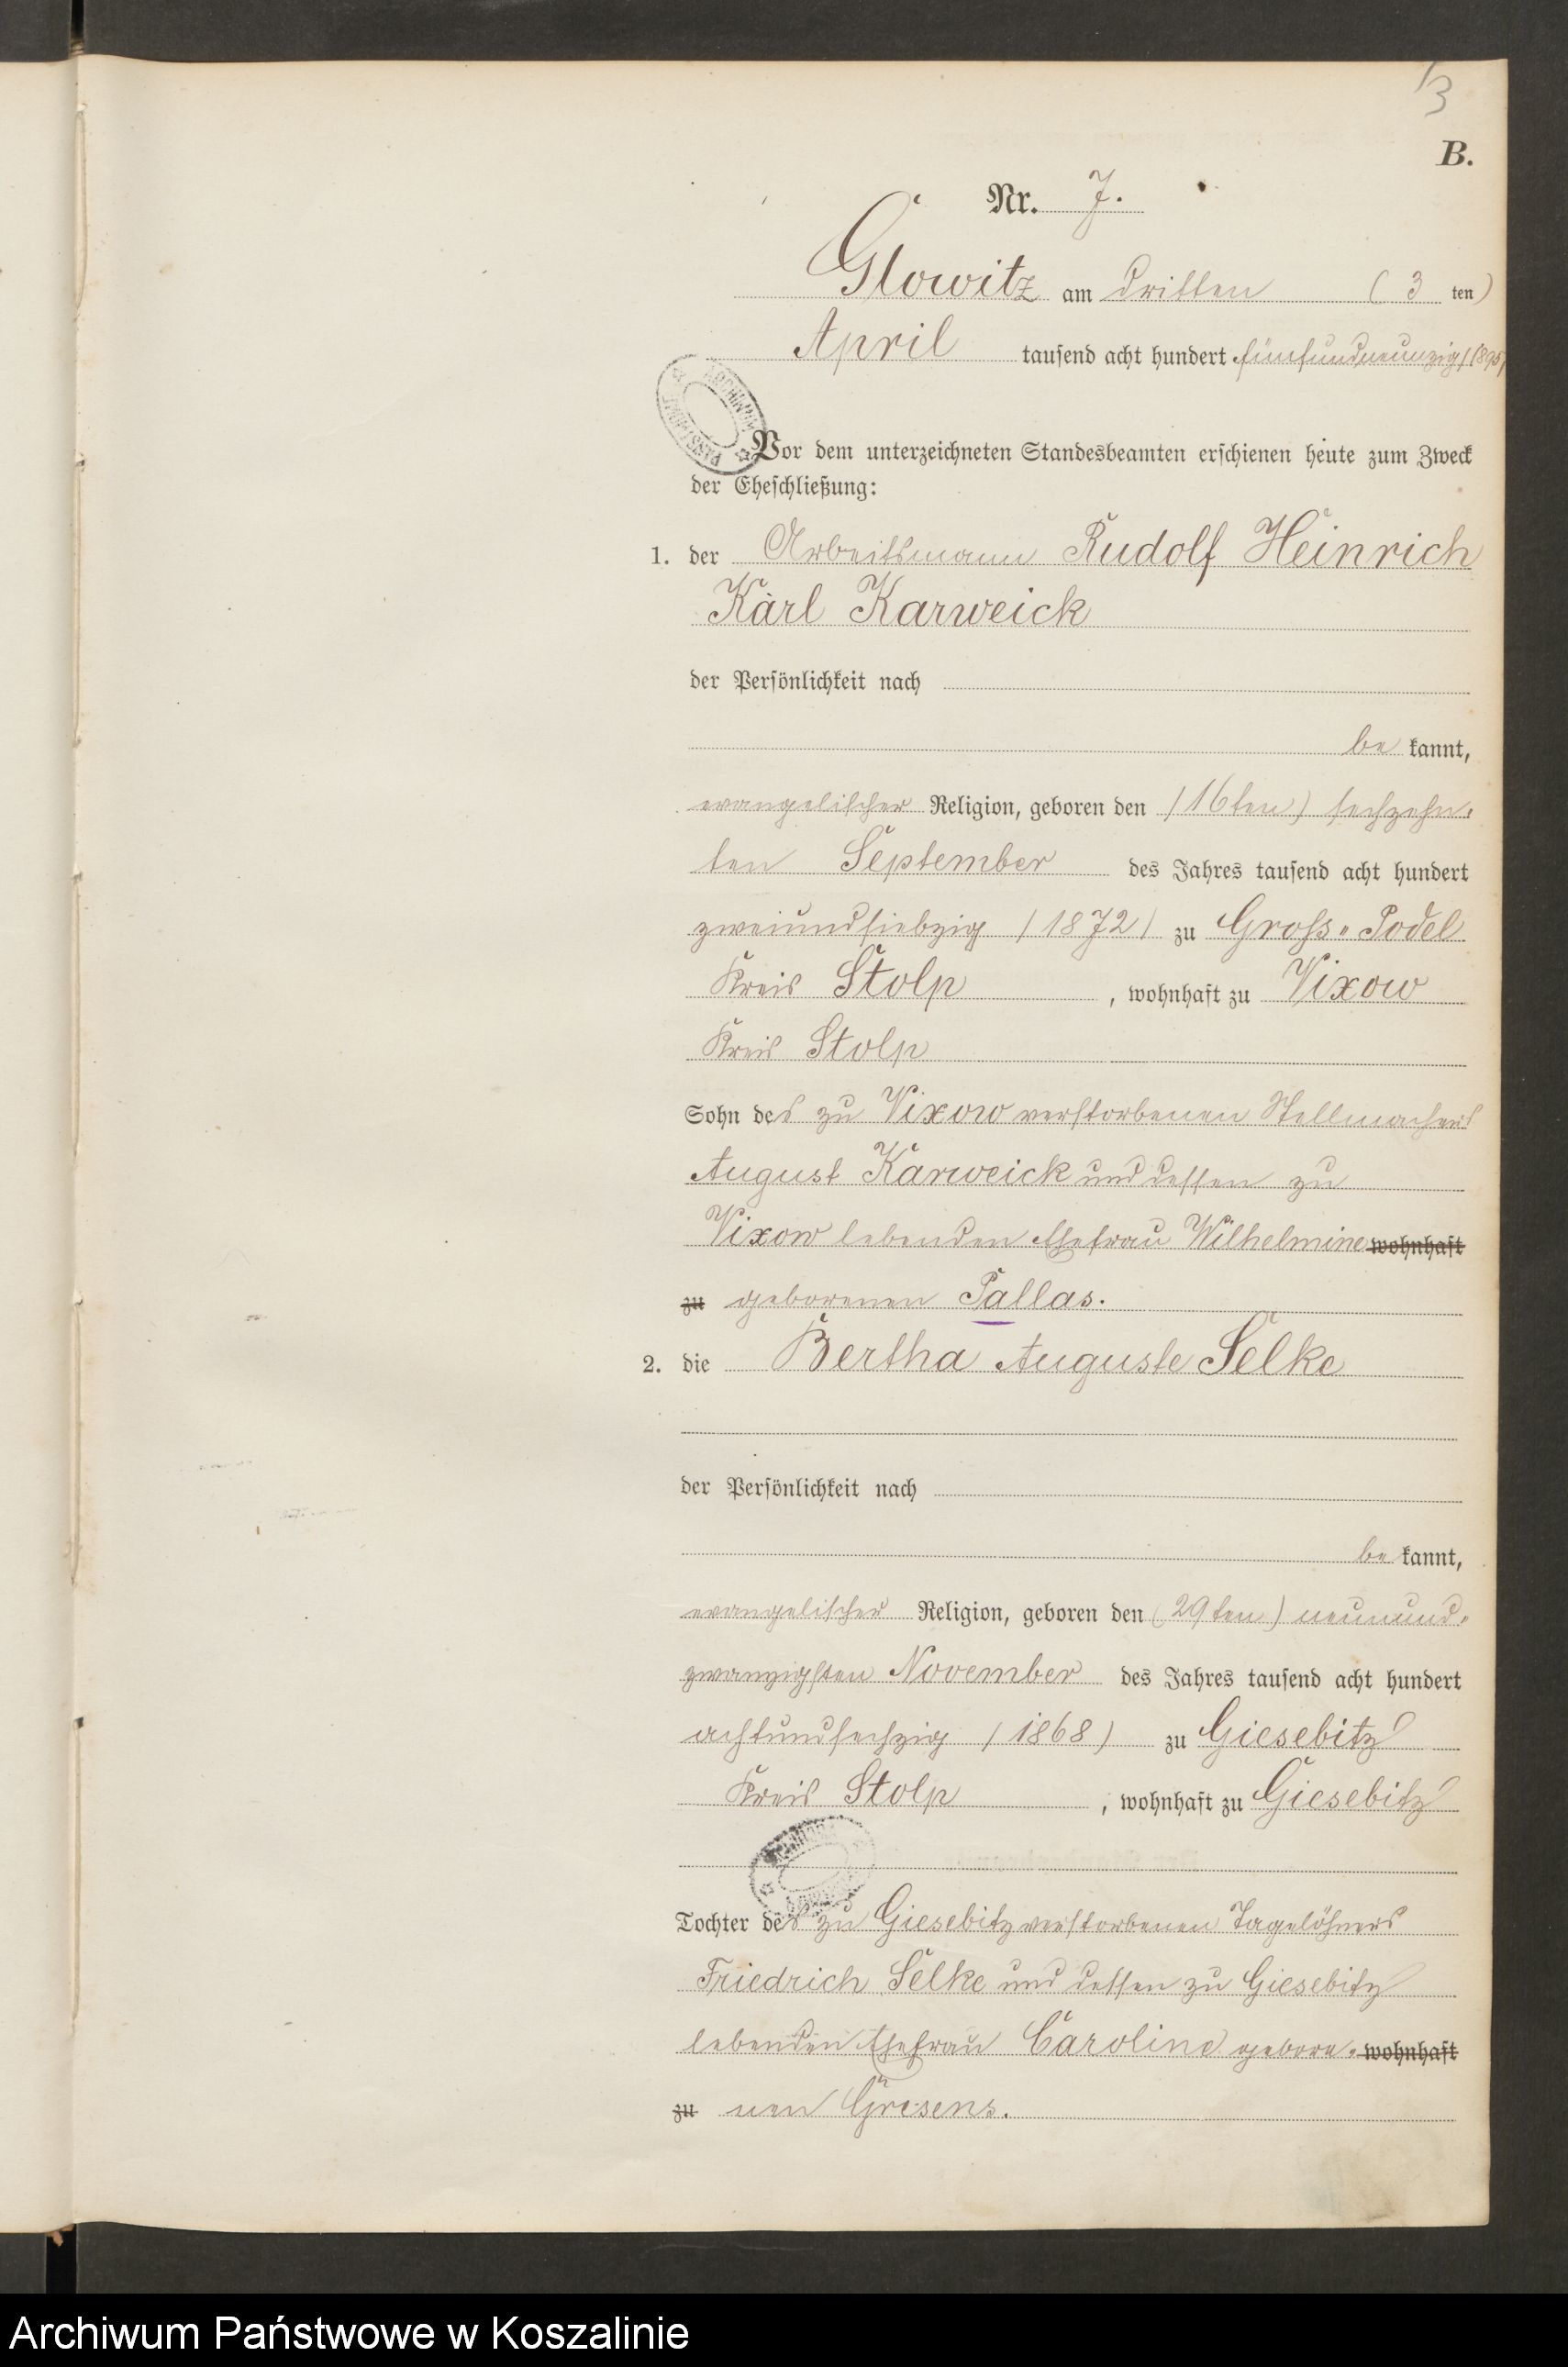 13
B.
Nr. 7.
Glowitz am dritten (3 ten)
April tausend acht hundert fünfundneunzig (1895)
Vor dem unterzeichneten Standesbeamten erschienen heute zum Zweck
der Eheschließung:
1. der Arbeitsmann Rudolf Heinrich
Karl Karweick
der Persönlichkeit nach
be kannt,
evangelischer Religion, geboren den (16ten) sechzehn-
ten September des Jahres tausend acht hundert
zweiundsiebzig (1872) zu Gross-Podel
Kreis Stolp, wohnhaft zu Vixow
Kreis Stolp
Sohn des zu Vixow verstorbenen Stellmachers
August Karweick und dessen zu
Vixow lebenden Ehefrau Wilhelmine wohnhaft
zu geborenen Pallas.
2. die Bertha Auguste Selke
der Persönlichkeit nach
be kannt,
evangelischer Religion, geboren den (29ten) neunund-
zwanzigsten November des Jahres tausend acht hundert
achtundsechzig (1868) zu Giesebitz
Kreis Stolp, wohnhaft zu Giesebitz
Tochter des zu Giesebitz verstorbenen Tagelöhners
Friedrich Selke und dessen zu Giesebitz
lebenden Ehefrau Caroline gebore- wohnhaft
zu nen Gresens.
Archiwum Państwowe w Koszalinie